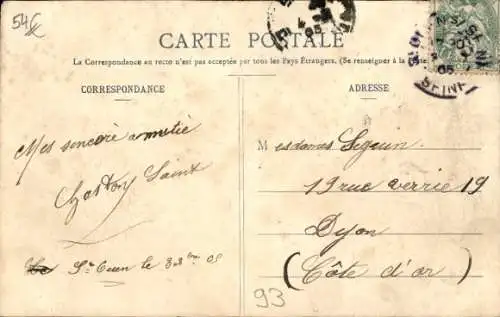 54
CARTE POSTALE
La Correspondance au recto n'est pas acceptée par tous les Pays Étrangers. (Se renseigner à la Poste)
CORRESPONDANCE
ADRESSE
Mes sincère amitié
Gaston Saint
St Ouen le 05
Mesdames Seguin
19 rue verrie 19
Dijon
(Côte d'or)
93